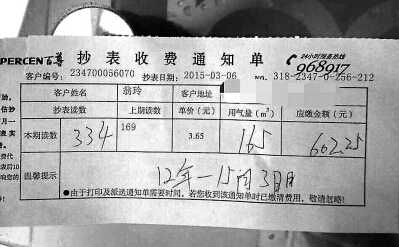 PERCEN百尊 抄表收费通知单 24小时服务热线 968917
客户编号: 234700056070 抄表日期: 2015-03-06 NO. 318-2347-0-256-212
客户姓名 翁玲 客户地址
抄表读数 上期读数 单价（元） 用气量（m³） 应缴金额（元）
本期读数 334 169 3.65 165 602.25
温馨提示 12年-15年3月
●由于打印及派送通知单需要时间，若您收到该通知单时已缴清费用，敬请忽略!